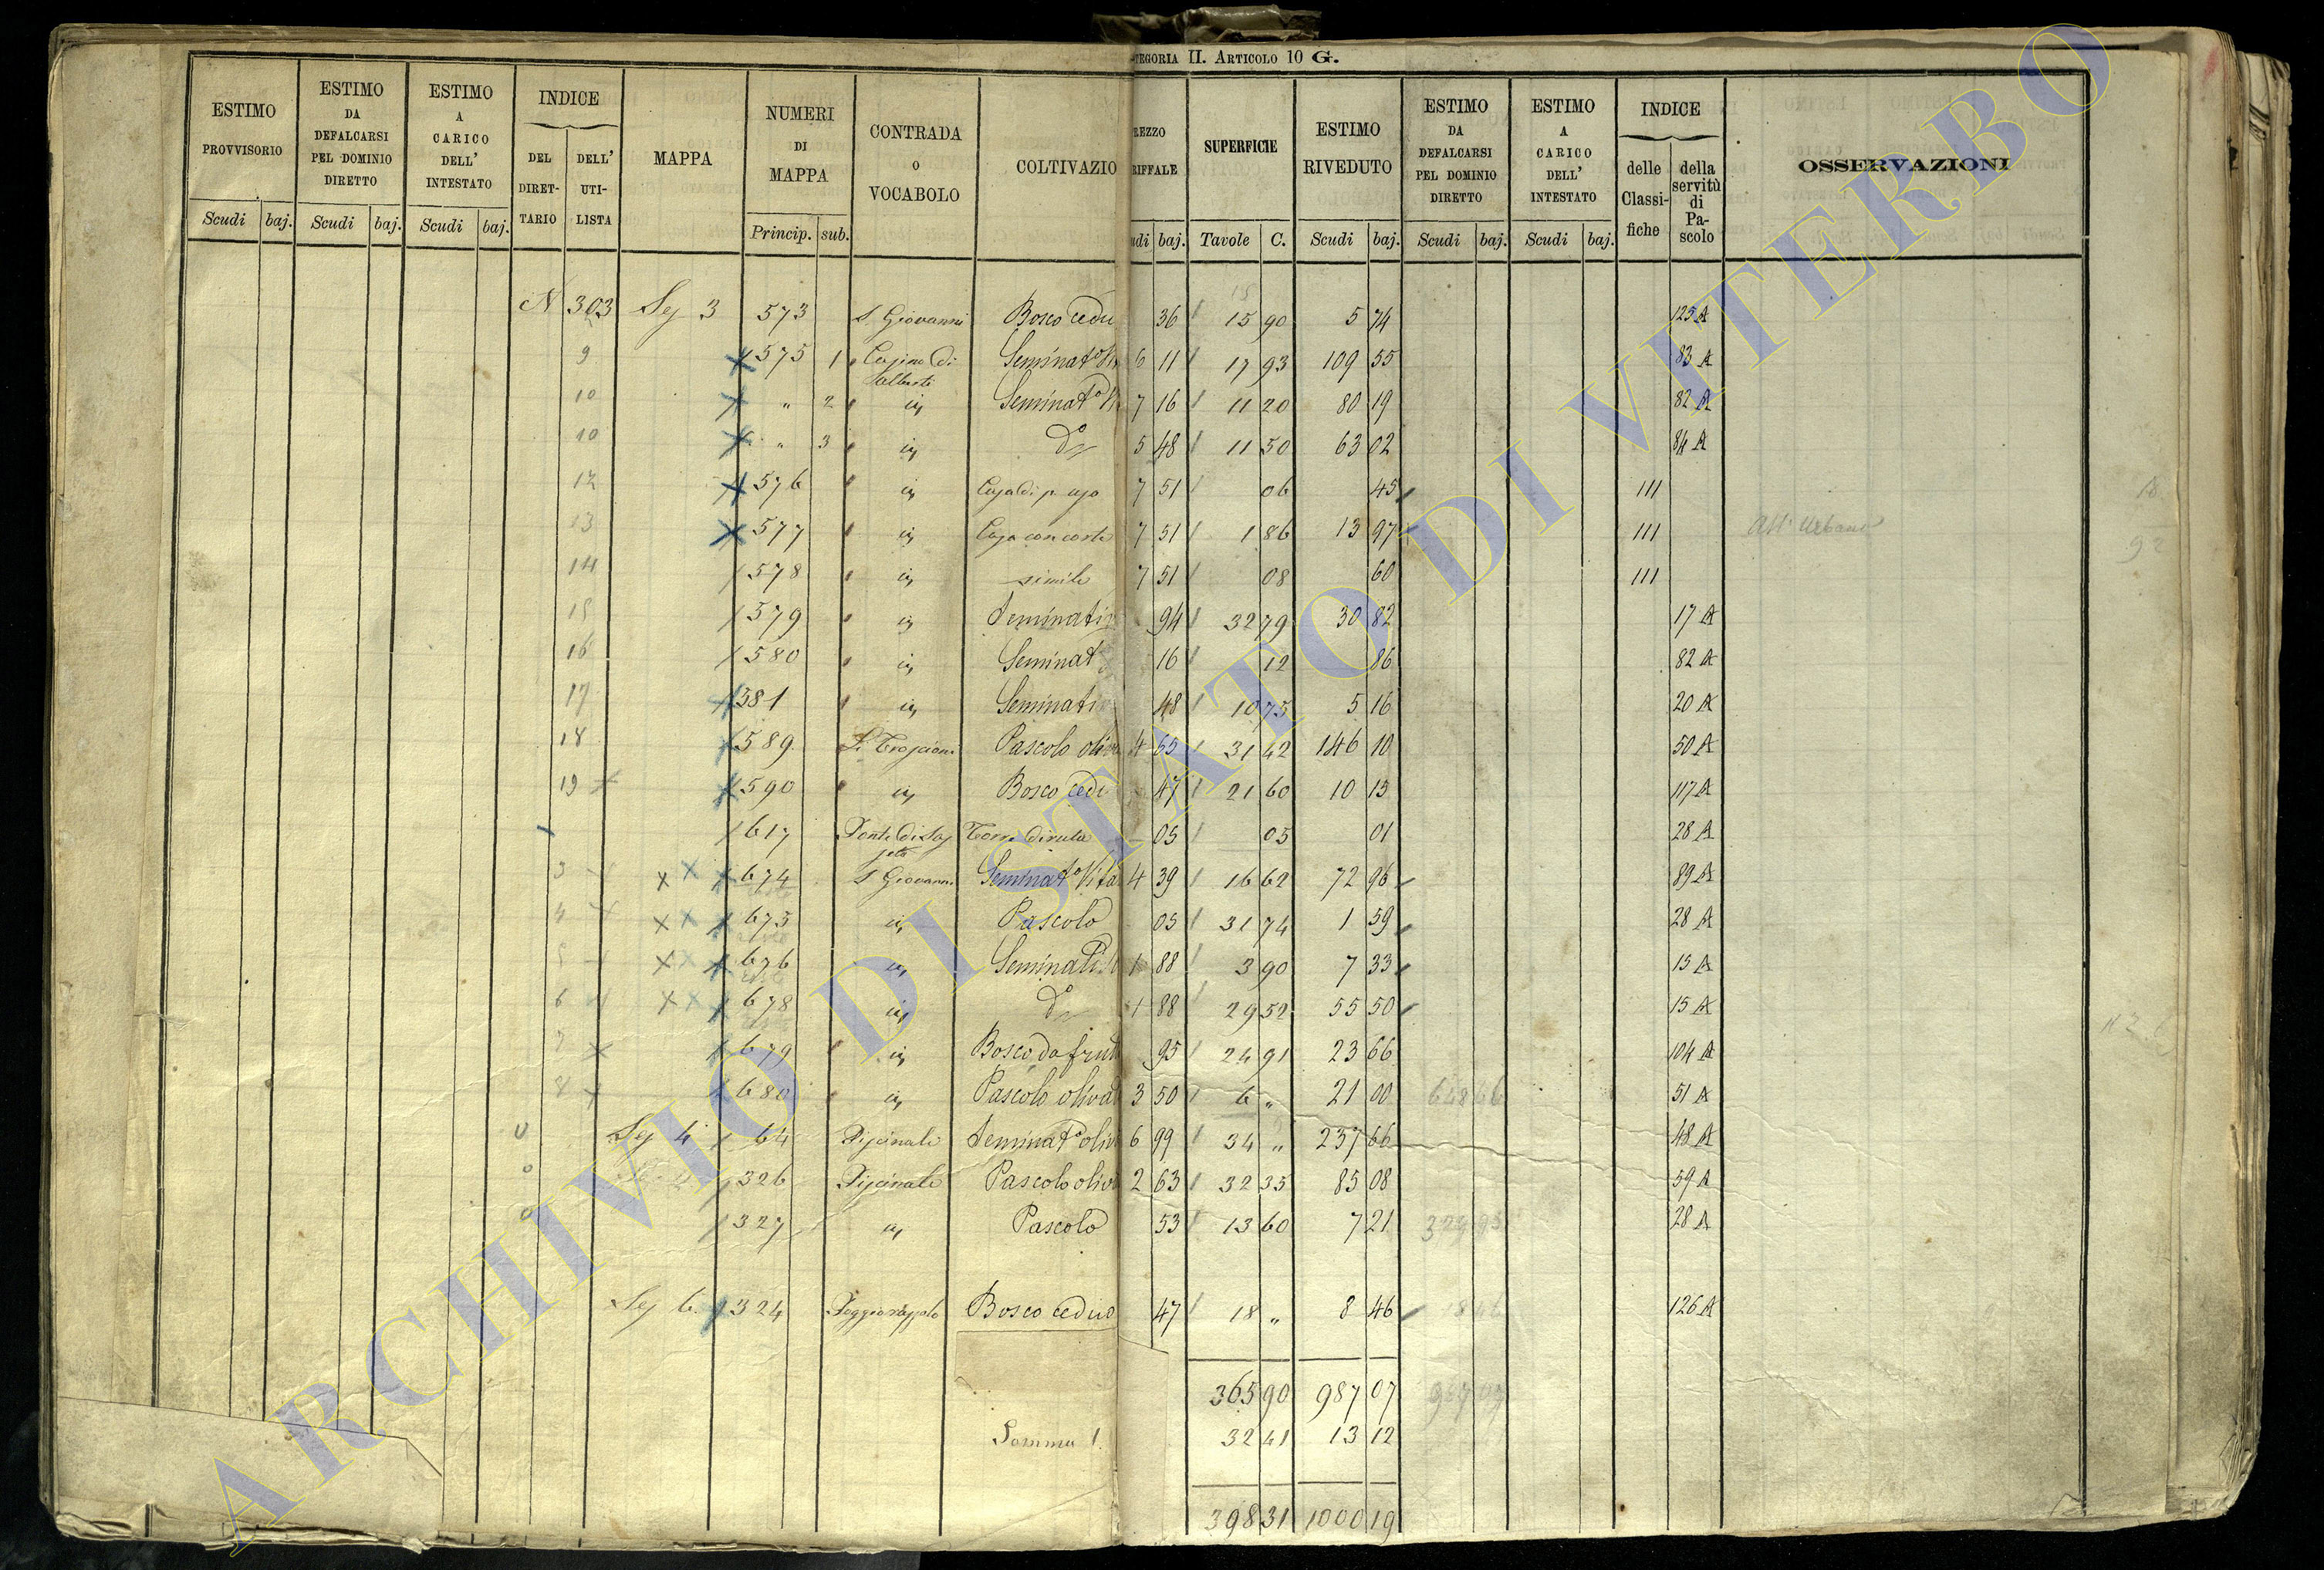 TEGORIA II. ARTICOLO 10 G.
ESTIMO PROVVISORIO Scudi baj.
ESTIMO DA DEFALCARSI PEL DOMINIO DIRETTO Scudi baj.
ESTIMO A CARICO DELL' INTESTATO Scudi baj.
INDICE DEL DIRET- TARIO DELL' UTI- LISTA
MAPPA
NUMERI DI MAPPA Princip. sub.
CONTRADA o VOCABOLO
COLTIVAZIO
REZZO RIFFALE udi baj.
SUPERFICIE Tavole C.
ESTIMO RIVEDUTO Scudi baj.
ESTIMO DA DEFALCARSI PEL DOMINIO DIRETTO Scudi baj.
ESTIMO A CARICO DELL' INTESTATO Scudi baj.
INDICE delle Classi- fiche della servitù di Pa- scolo
OSSERVAZIONI
N 303 Sez 3 573 S. Giovanni Bosco cedu 36 15 90 5 74 125 A
9 575 1 Casino di Seminat° 6 11 17 93 109 55 83 A
10 " 2 Seminat° 7 16 11 20 80 19 82 A
10 " 3 d° 5 48 11 50 63 02 84 A
12 576 Casa di p. uso 7 51 06 45 111
13 577 Casa con corte 7 51 1 86 13 97 111 Urbano
14 578 simile 7 51 08 60 111
15 579 Seminati 94 32 79 30 82 17 A
16 580 Seminat 16 12 86 82 A
17 581 Seminati 48 10 75 5 16 20 A
18 589 Pascolo oliva 4 65 31 42 146 10 50 A
19 590 Bosco cedu 47 21 60 10 13 117 A
617 Torre diruta 05 05 01 28 A
3 674 S Giovanni Seminat° Vita 4 39 16 62 72 96 89 A
4 675 Pascolo 05 31 74 1 59 28 A
5 676 Seminati 1 88 3 90 7 33 15 A
6 678 d° 1 88 29 52 55 50 15 A
7 679 Bosco da frut 95 24 91 23 66 104 A
8 680 Pascolo olivat 3 50 6 " 21 00 648 66 51 A
Sez 4 64 Piscinale Seminat° oliv 6 99 34 " 237 66 48 A
326 Piscinale Pascolo oliva 2 63 32 35 85 08 59 A
327 Pascolo 53 13 60 7 21 329 95 28 A
Sez 6 324 Bosco ceduo 47 18 " 8 46 126 A
365 90 987 07
Somma 1. 32 41 13 12
398 31 1000 19
ARCHIVIO DI STATO DI VITERBO